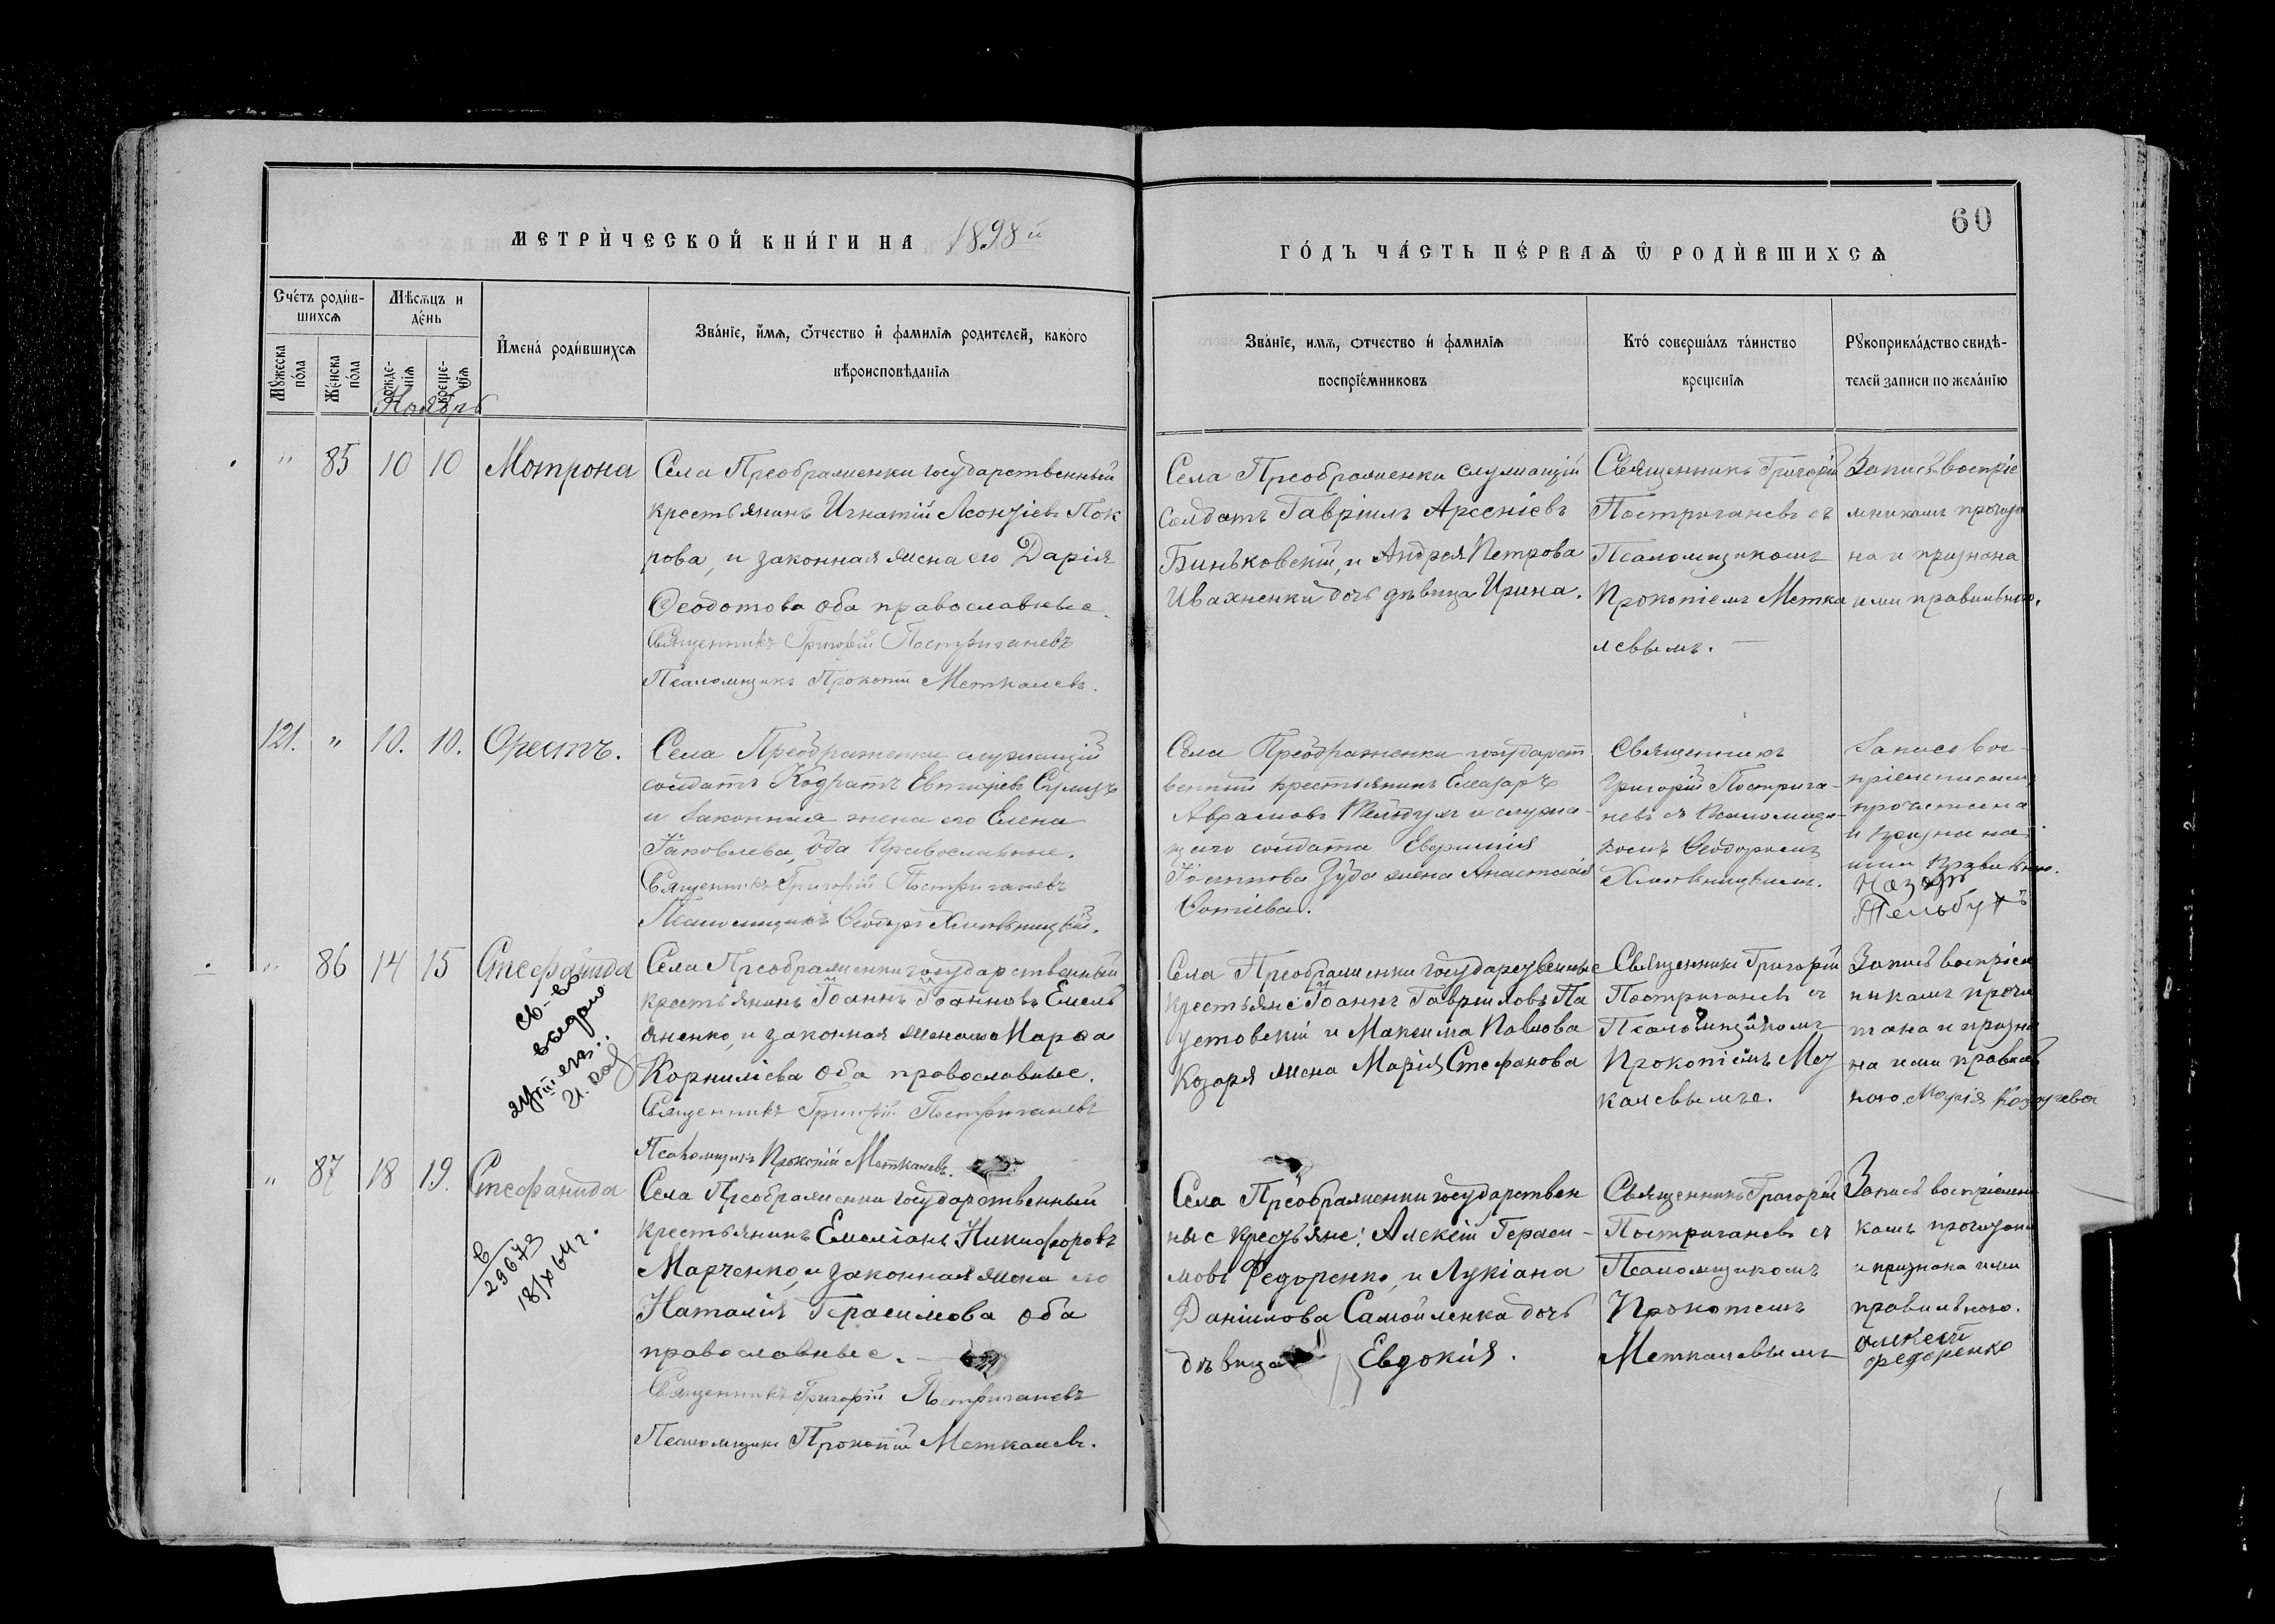 МЕТРИ́ЧЕСКОЙ КНИ́ГИ НА 1898й
60
ГО́ДЪ ЧА́СТЬ ПЕ́РВАѦ Ѡ РОДИ́ВШИХСѦ
Сче́тъ роди́в-
шихсѧ
Мѣсѧцъ и
де́нь
Мꙋжеска
по́ла
Же́нска
по́ла
рожде-
нїѧ
креще-
нїѧ
Ноябрь
И҆мена́ роди́вшихсѧ
Зва́нїе, и҆́мѧ, ѻ҆́тчество и҆ фамилїѧ родителей, како́го
вѣроисповѣ́данїѧ
Зва́нїе, имѧ, ѻтчество и҆ фамилїѧ
воспрїе́мниковъ
Кто́ соверша́лъ та́инство
креще́нїѧ
Рꙋкоприкла́дство свидѣ́-
телей записи по жела́нїю
" 85 10 10 Мотрона
Села Преображенки государственный
крестьянинъ Игнатій Леонтіевъ Пок
рова, и законная жена его Дарія
Ѳеодотова оба православные.
Священникъ Григорій Постригачевъ
Псаломщикъ Прокопій Меткалевъ.
Села Преображенки служащій
Солдатъ Гавріилъ Арсеніевъ
Биньковскій, и Андрея Петрова
Ивахненки дочь дѣвица Ирина.
Священникъ Григорій
Постригачевъ съ
Псаломщикомъ
Прокопіемъ Метка
левымъ.
Запись воспріе
мникамъ прочита
на и признана
ими правильною.
121. " 10. 10. Орестъ.
Села Преображенки служащій
солдатъ Кодратъ Евтихіевъ
и законная жена его Елена
Іаковлева, оба Православные.
Священникъ Григорій Постригачевъ
Псаломщикъ Ѳеодоръ
Села Преображенки государст
венный крестьянинъ Елеазаръ
Авраамовъ и служа-
щаго солдата
Іоаннова жена Анастасія
Фотіева.
Священникъ
Григорій Пострига-
чевъ съ Псаломщи-
комъ Ѳеодоромъ
Запись вос-
пріемникамъ
прочитана
и признана
ими правильною.
Назаръ
Тельбухъ
" 86 14 15 Стефанида
св-во
выдано
Села Преображенки государственный
крестьянинъ Іоаннъ Іоанновъ Емель
яненко, и законная жена его Марѳа
Корниліева оба православные.
Священникъ Григорій Постригачевъ
Псаломщикъ Прокопій Меткалевъ.
Села Преображенки государственные
крестьяне Іоаннъ Гавріиловъ Па
устовскій и Максима Павлова
Козаря жена Марія Стефанова
Священникъ Григорій
Постригачевъ съ
Псаломщикомъ
Прокопіемъ Мет
калевымъ.
Запись воспріем
никамъ прочи
тана и призна
на ими правиль
ною. Марія Козарева
" 87 18 19. Стефанида
в
29673
18/X 64 г.
Села Преображенки государственный
крестьянинъ Емеліанъ Никифоровъ
Марченко, и законная жена его
Наталія Герасимова оба
православные.
Священникъ Григорій Постригачевъ
Псаломщикъ Прокопій Меткалевъ.
Села Преображенки государствен
ные крестьяне: Алексій Гераси-
мовъ Федоренко, и Лукіана
Даніилова Самойленка дочь
дѣвица Евдокія.
Священникъ Григорій
Постригачевъ съ
Псаломщикомъ
Прокопіемъ
Меткалевымъ
Запись воспріемни
камъ прочитана
и признана ими
правильною.
Алексей
федоренко